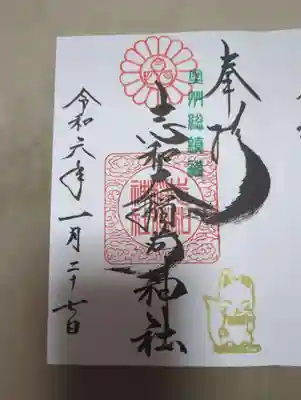 奉拝
奥州総鎮護
志和稲荷神社
令和六年一月二十七日